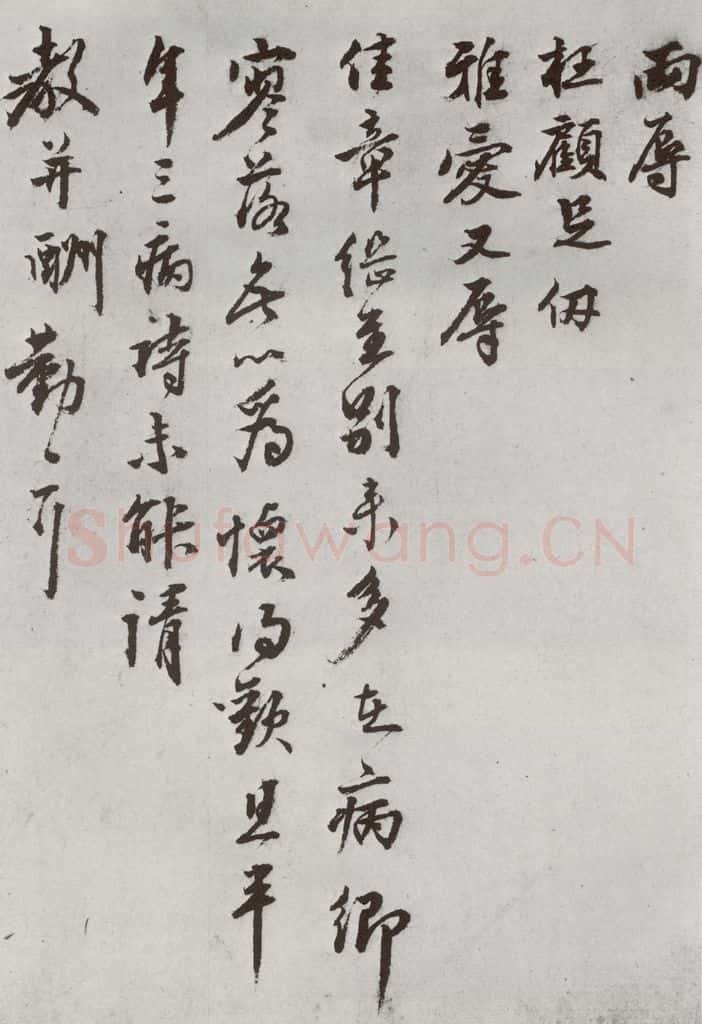 兩辱
枉顧足仞
雅愛又辱
佳章繼至別來多在病鄉
寥落無以為懷得歎且半
年三病詩未能請
教并酬勤々耳
Shufawang.CN